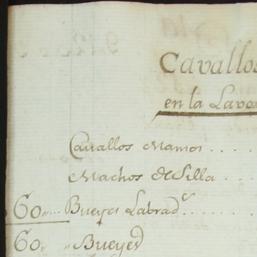 Cavallos
en la Lava
Cavallos Mamos . . . .
Machos de Silla . . . .
60 . . . Bueyes Labrad.s . . . . .
60, „ Bueyes